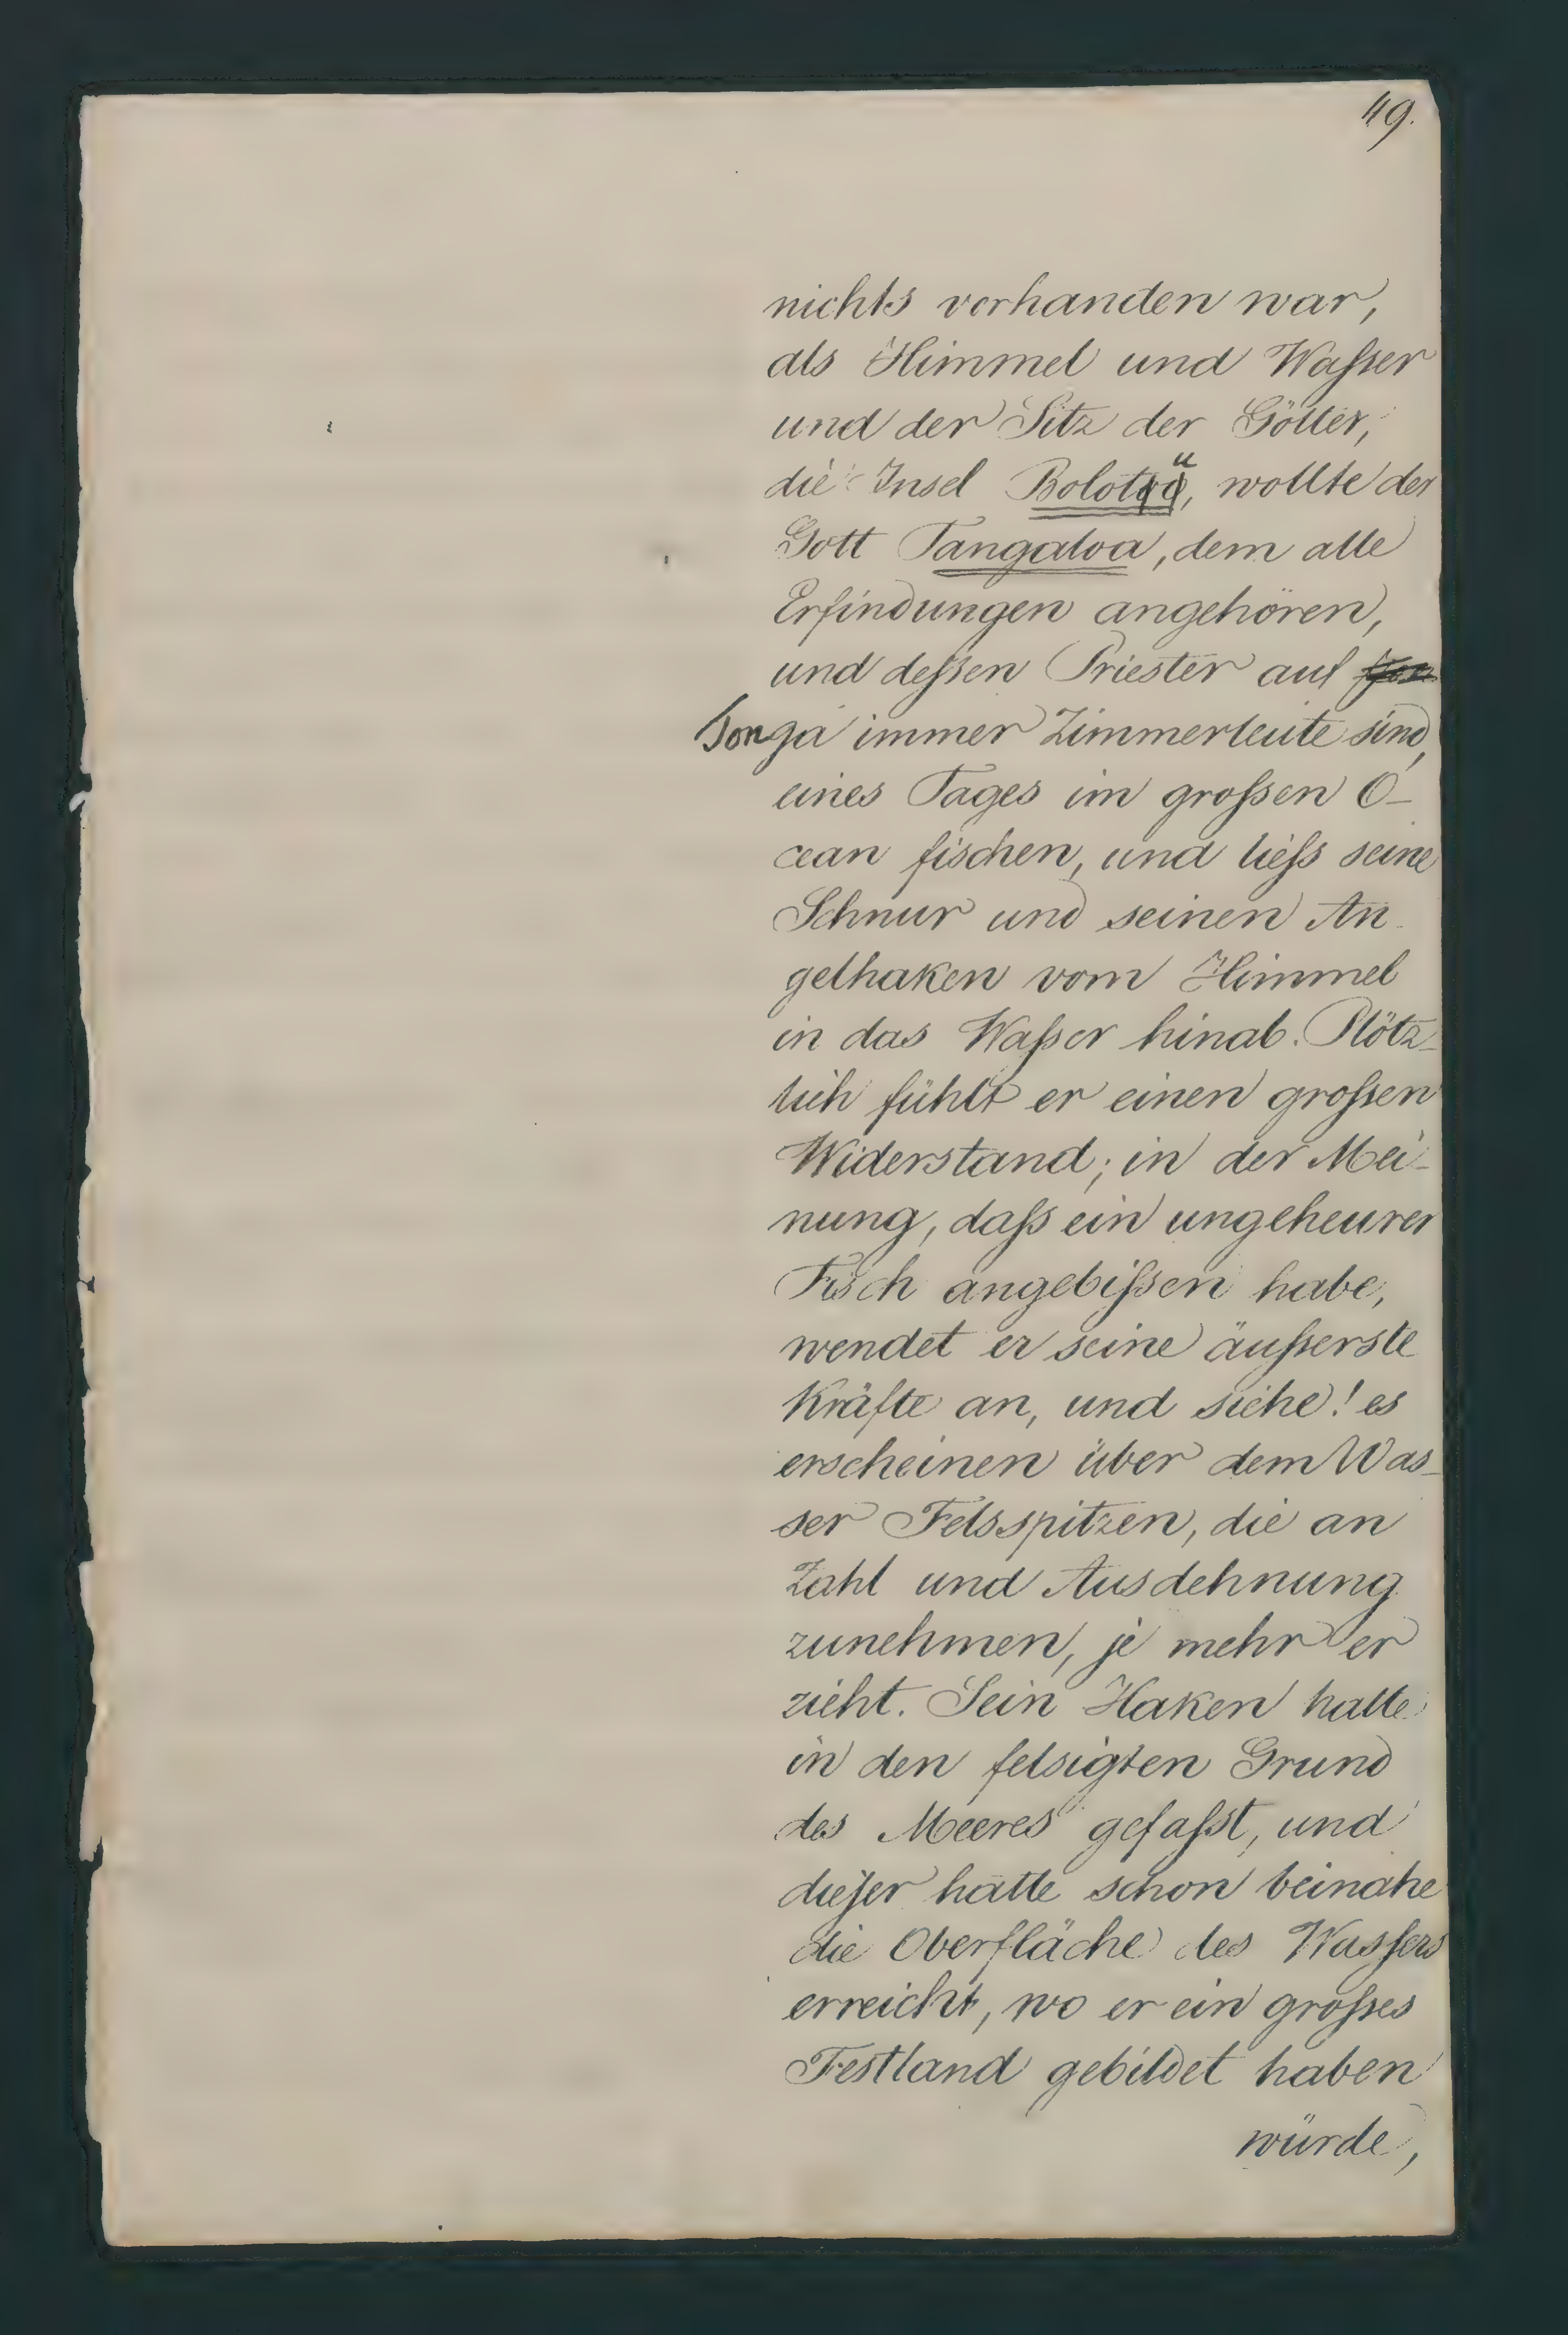 49.
nichts vorhanden war,
als Himmel und Waſser
und der Sitz der Götter,
die Insel Bolotu, wollte der
Gott Tangaloa, dem alle
Erfindungen angehören,
und deſsen Priester auf
Tonga immer Zimmerleute sind,
eines Tages im groſsen O-
cean fischen, und lieſs seine
Schnur und seinen An-
gelhaken vom Himmel
in das Waſser hinab. Plötz-
lich fühlt er einen groſsen
Widerstand; in der Mei-
nung, daſs ein ungeheurer
Fisch angebiſsen habe,
wendet er seine äuſserste
Kräfte an, und siehe! es
erscheinen über dem Was-
ser Felsspitzen, die an
Zahl und Ausdehnung
zunehmen, je mehr er
zieht. Sein Haken hatte
in den felsigten Grund
des Meeres gefaſst, und
dieſer hatte schon beinahe
die Oberfläche des Wasſers
erreicht, wo er ein groſses
Festland gebildet haben
würde,